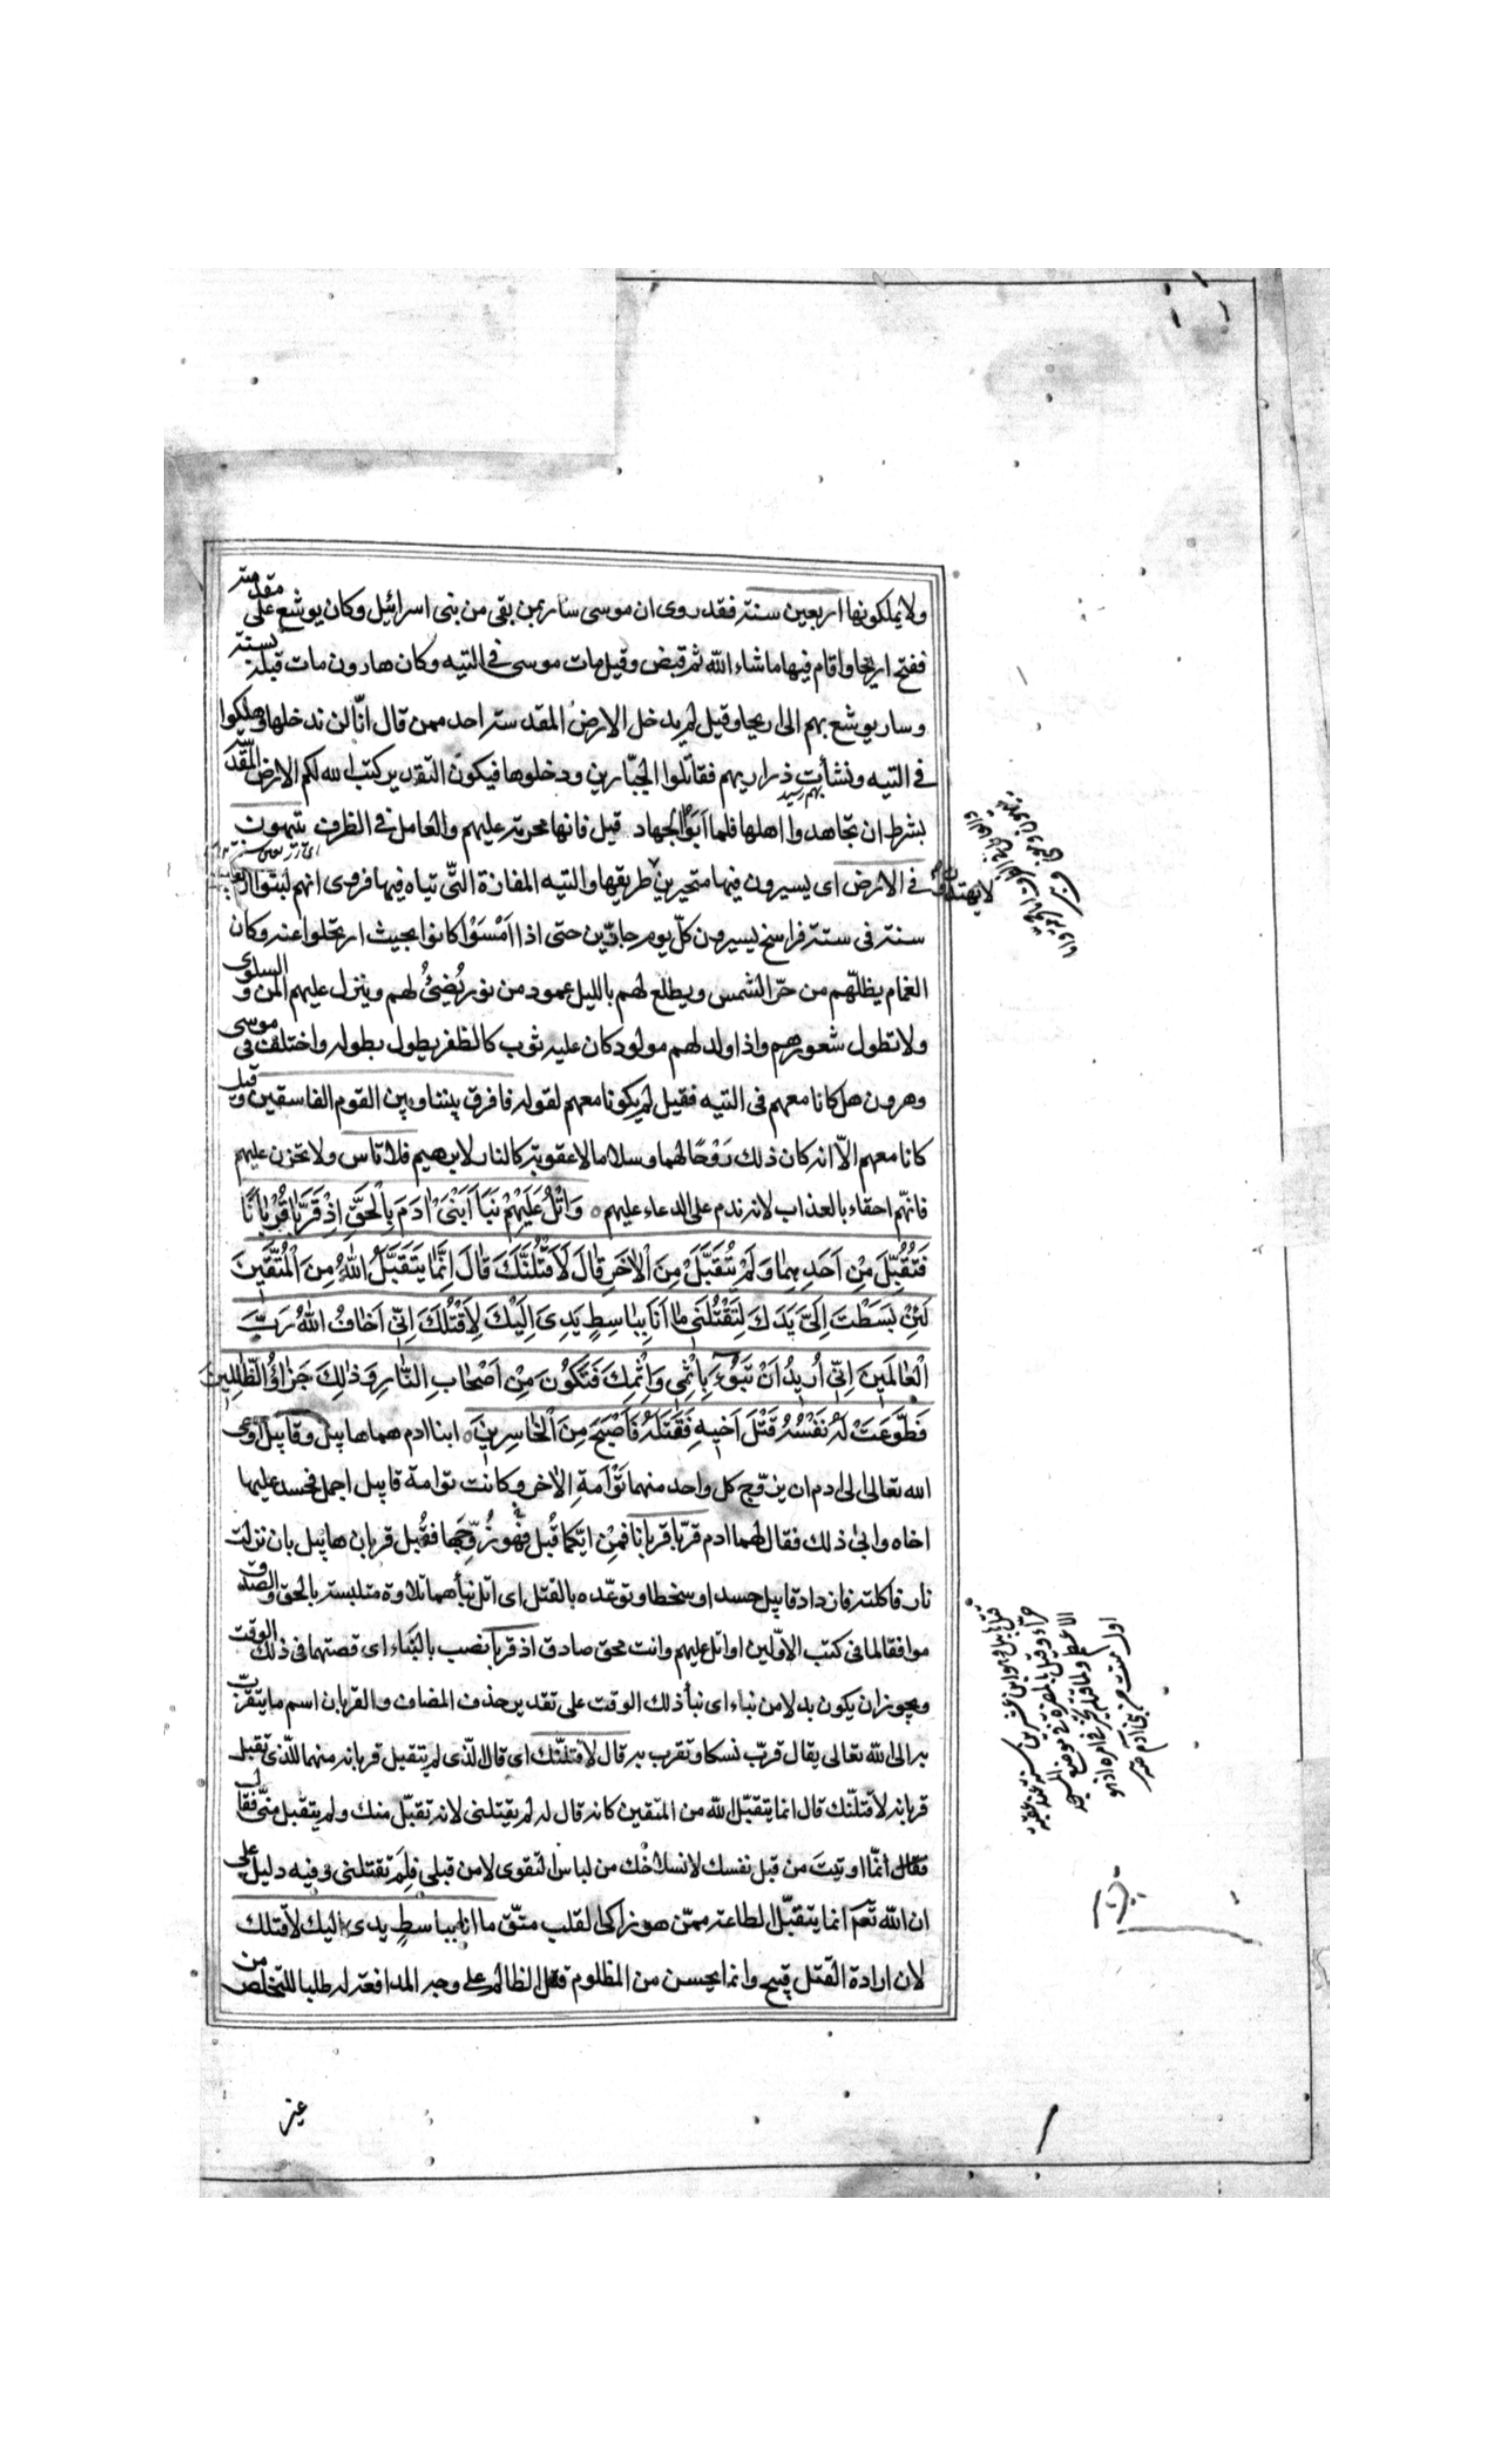 ولا يملكونها اربعين سنة فقد روى ان موسى سار بمن بقى من بنى اسرائيل وكان يوشع على مقدمته
ففتح اريحا واقام فيها ما شاء الله ثم قبض وقيل مات موسى في التيه وكان هارون مات قبله بسنة
وسار يوشع بهم الى اريحا وقيل لم يدخل الارض المقدسة احد ممن قال انّا لن ندخلها وهلكوا
في التيه ونشأت ذراريهم فقاتلوا الجبّارين ودخلوها فيكون التقدير كتب الله لكم الارض المقدسة
بهم رسيد
بشرط ان تجاهدوا اهلها فلما اَبَوُا الجهاد قيل فانها محرمة عليهم والعامل في الظرف يتيهون
في الارض اى يسيرون فيها متحيرين لا يهتدون طريقها والتيه المفازة التّى تياه فيها فروى انهم لبثوا اربعين
سنة فى ستة فراسخ يسيرون كلّ يوم جادّين حتى اذا اَمْسَوْا كانوا بحيث ارتحلوا عنه وكان
الغمام يظلّهم من حرّ الشمس ويطلع لهم بالليل عمود من نور يُضيئُ لهم وينزل عليهم المن والسلوى
ولا تطول شعورهم واذا ولد لهم مولود كان عليه ثوب كالظفر يطول بطوله واختلف فى موسى
وهرون هل كانا معهم فى التيه فقيل لم يكونا معهم لقوله فافرق بيننا وبين القوم الفاسقين وقيل
كانا معهم الاّ انه كان ذلك رَوْحًا لهما وسلاما لا عقوبة كالنار لابرهيم فلا تاس ولا تحزن عليهم
فانهّم احقاء بالعذاب لانه ندم على الدعاء عليهم ٥ وَاتْلُ عَلَيْهِمْ نَبَاَ ابْنَىْ اٰدَمَ بِالْحَقِّ اِذْ قَرَّبَا قُرْبَانًا
فَتُقُبِّلَ مِنْ اَحَدِهِمٰا وَلَمْ يُتَقَبَّلْ مِنَ الْاٰخَرِ قٰالَ لَاَقْتُلَنَّكَ قٰالَ اِنَّمٰا يَتَقَبَّلُ اللهُ مِنَ الْمُتَّقٖينَ
لَئِنْ بَسَطْتَ اِلَىَّ يَدَكَ لِتَقْتُلَنٖى مٰا اَنَا بِبٰاسِطٍ يَدِىَ اِلَيْكَ لِاَقْتُلَكَ اِنّٖى اَخٰافُ اللهَ رَبَّ
الْعٰالَمٖينَ اِنّٖى اُرٖيدُ اَنْ تَبُوءَ بِاِثْمٖى وَاِثْمِكَ فَتَكُونَ مِنْ اَصْحٰابِ النّٰارِ وَذٰلِكَ جَزٰاؤُ الظّٰالِمٖينَ
فَطَوَّعَتْ لَهُ نَفْسُهُ قَتْلَ اَخٖيهِ فَقَتَلَهُ فَاَصْبَحَ مِنَ الْخٰاسِرٖينَ ٥ ابنا ادم هما هابيل وقابيل اوحى
الله تعالى الى ادم ان يزوّج كل واحد منهما تَوْاَمةِ الاٰخر وكانت توامة قابيل اجمل فحسد عليها
اخاه وابى ذلك فقال لهما ادم قرّبا قربانا فمِن ايّكما قُبل فهو زُوّجها فقُبل قربان هابيل بان نزلت
نار فاكلته فازداد قابيل حسدا وسخطا وتوعّده بالقتل اى اتل نبأهما تلاوة متلبسة بالحق والصدق
موافقا لما فى كتب الاوّلين او اتل عليهم وانت محق صادق اذ قربا نصب بالنبَاء اى قصتهما فى ذلك الوقت
ويجوز ان يكون بدلا من نباء اى نبأ ذلك الوقت على تقدير حذف المضاف والقربان اسم ما يتقرّب
به الى الله تعالى يقال قرّب نسكا وتقرب به قال لاقتلنّك اى قال الّذى لم يتقبل قربانه منهما للّذى تقبل
قربانه لاقتلنّك قال انما يتقبّل الله من المتقين كانه قال له لم يقتلنى لانه تقبّل منك ولم يتقبل منّى فقال
فقال انمّا اوتيتَ من قبل نفسك لانسلاخك من لباس التقوى لا من قبلى فلِمَ تقتلنى وفيه دليل على
ان الله تعم انما يتقبّل الطاعة ممّن هو زاكى القلب متّق ما انا بباسطٍ يدى اليك لاقتلك
لان ارادة القتل قبيح وانما يحسن من المظلوم قتل الظالم على وجه المدافعة له طلبا للتخلص من
قتل هابيل وهو ابن عشرين سنة عند عقبة
حرّاء وقيل بالبصرة في موضع المسجد
الاعظم ولما قتله
اول ميت من بنى ادم
عز